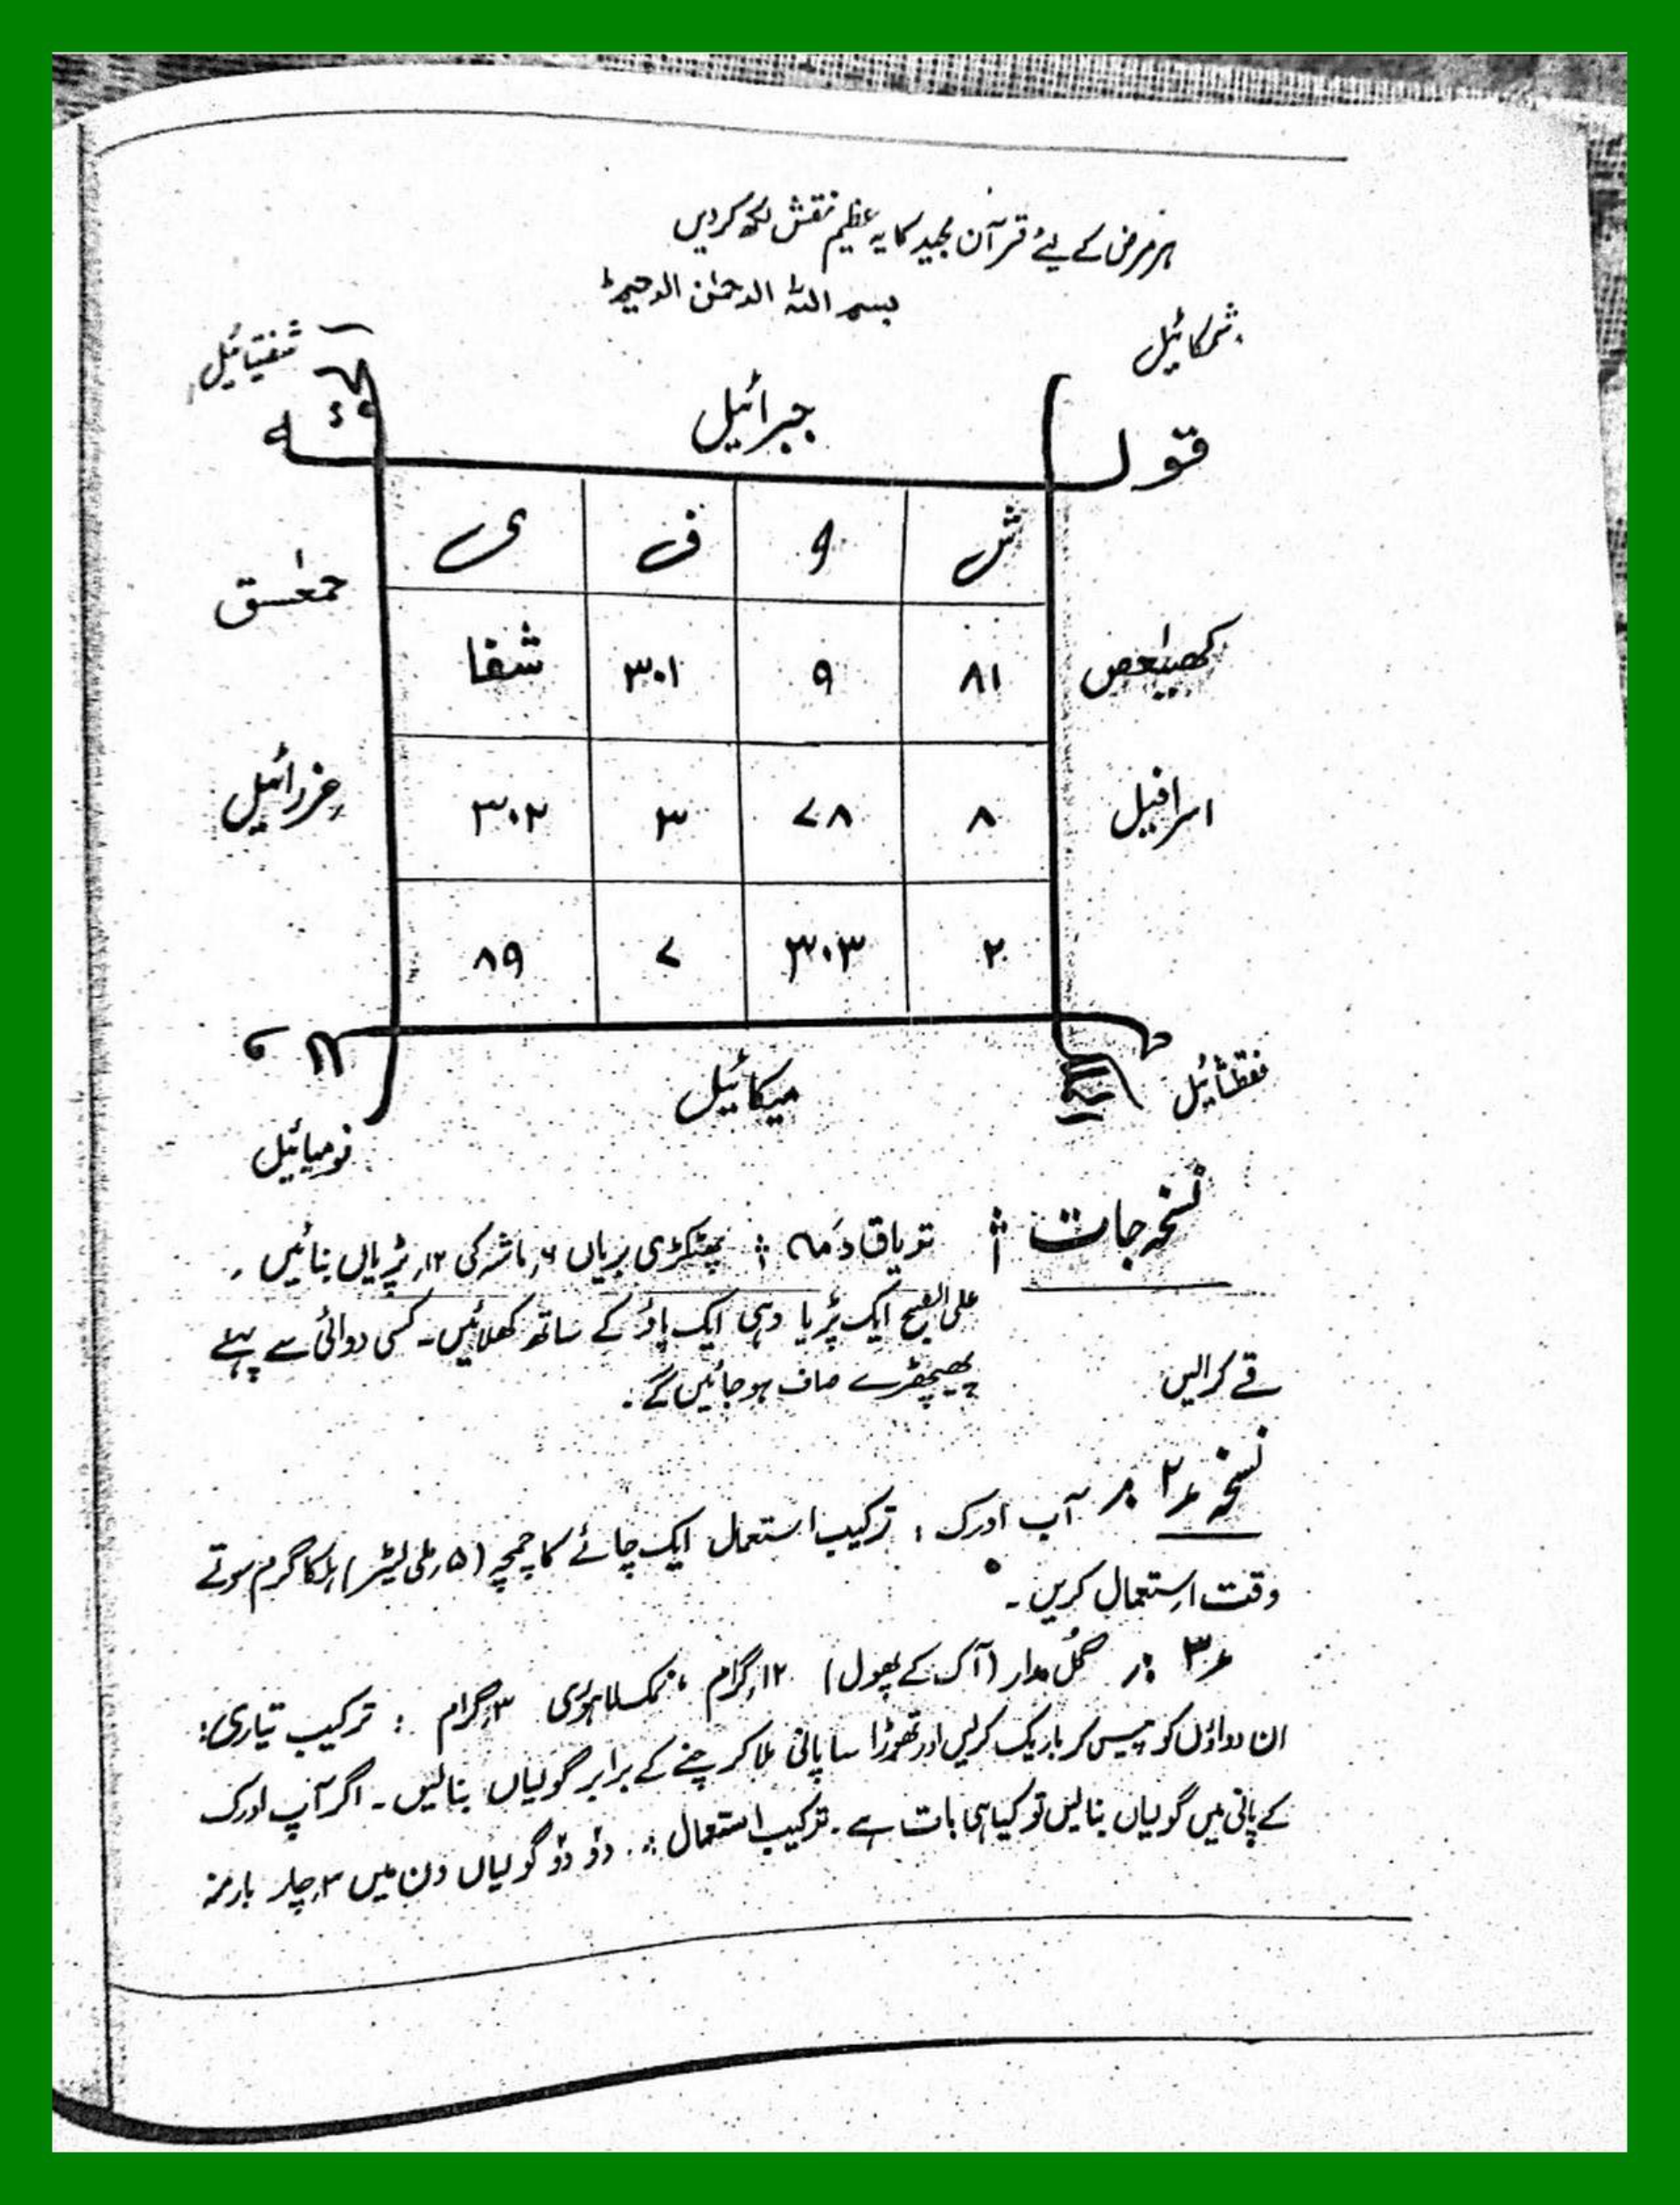 ہر مرض کے لیے قرآن مجید کا یہ عظیم نقش لکھ کر دیں
بسم اللہ الرحمٰن الرحیم
شمکائیل
شفتیائیل
جبرائیل
قولہ
ش ا ف ی
۸۱ ۹ ۳۰۱ شفا
۸ ۷۸ ۳ ۳۰۲
۲ ۳۰۳ ۷ ۸۹
حمعسق
کھیعص
عزرائیل
اسرافیل
میکائیل
فقطشائیل
نومیائیل
نسخہ جات : تریاق دمہ : پھٹکڑی بریاں ۶ ماشہ کی ۱۲ پڑیاں بنائیں ۔
علی الصبح ایک پڑیا دہی ایک پاؤ کے ساتھ کھلائیں۔ کسی دوائی سے پہلے
قے کرالیں پھیپھڑے صاف ہو جائیں گے۔
نسخہ ۲ : آب ادرک : ترکیب استعمال ایک چائے کا چمچہ (۵ ملی لیٹر) ہلکا گرم سوتے
وقت استعمال کریں ۔
۳ : گل مدار (آک کے پھول) ۱۲ گرام ، نمک لاہوری ۳ گرام : ترکیب تیاری:
ان دواؤں کو پیس کر باریک کرلیں اور تھوڑا سا پانی ملا کر چنے کے برابر گولیاں بنالیں ۔ اگر آپ ادرک
کے پانی میں گولیاں بنالیں تو کیا ہی بات ہے ۔ ترکیب استعمال : دو دو گولیاں دن میں ۳ چار بار منہ